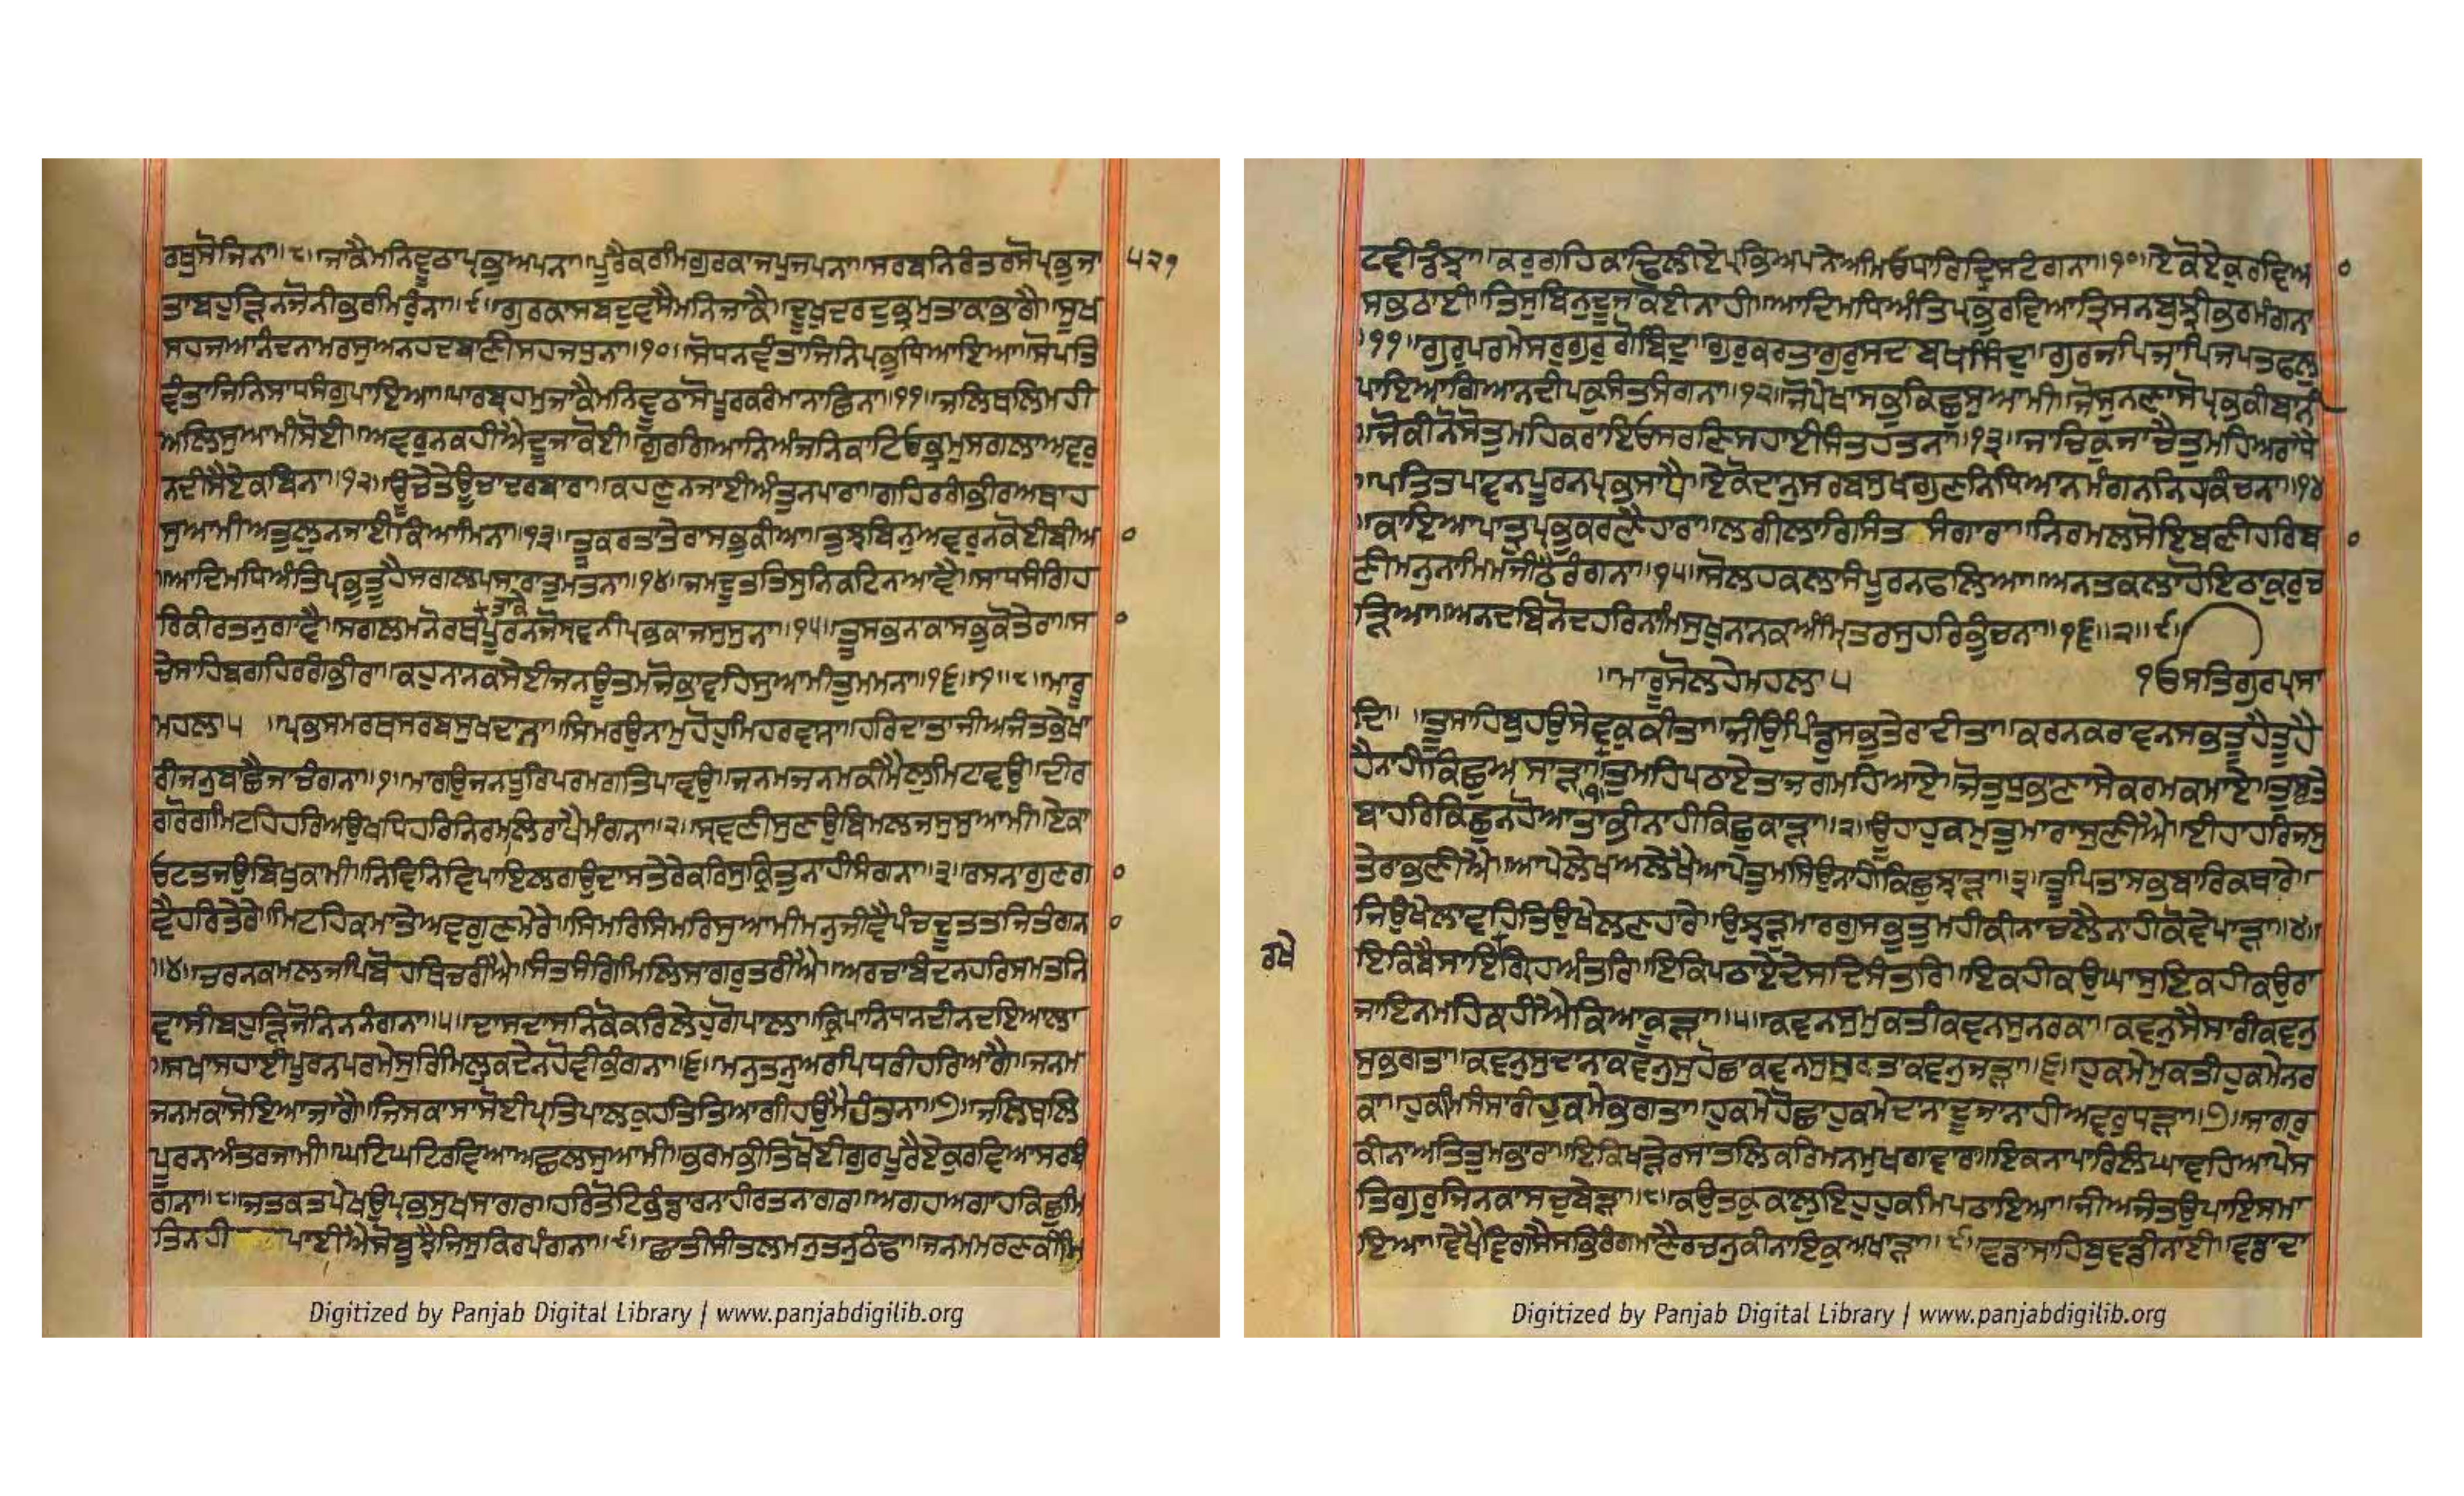 ਰਬੁਸੋਜਿਨਾ॥੮॥ਜਾਕੈਮਨਿਵੂਠਾਪ੍ਰਭੁਅਪਨਾ॥ਪੂਰੈਕਰਮਿਗੁਰਕਾਜਪੁਜਪਨਾ॥ਸਰਬਨਿਰੰਤਰਸੋਪ੍ਰਭੁਜਾ
੫੨੧
ਤਾਬਹੁੜਿਨਜੋਨੀਭਰਮਿਰੁੰਨਾ॥੯॥ਗੁਰਕਾਸਬਦੁਵਸੈਮਨਿਜਾਕੈ॥ਦੂਖੁਦਰਦੁਭ੍ਰਮੁਤਾਕਾਭਾਗੈ॥ਸੂਖ
ਸਹਜਆਨੰਦਨਾਮਰਸੁਅਨਹਦਬਾਣੀਸਹਜਧੁਨਾ॥੧੦॥ਸੋਧਨਵੰਤਾਜਿਨਿਪ੍ਰਭੁਧਿਆਇਆ॥ਸੋਪਤਿ
ਵੰਤਾਜਿਨਿਸਾਧਸੰਗੁਪਾਇਆ॥ਪਾਰਬ੍ਰਹਮੁਜਾਕੈਮਨਿਵੂਠਾਸੋਪੂਰਕਰੰਮਾਨਾਛਿਨਾ॥੧੧॥ਜਲਿਥਲਿਮਹੀ
ਅਲਿਸੁਆਮੀਸੋਈ॥ਅਵਰੁਨਕਹੀਐਦੂਜਾਕੋਈ॥ਗੁਰਗਿਆਨਿਅੰਜਨਿਕਾਟਿਓਭ੍ਰਮੁਸਗਲਾਅਵਰੁ
ਨਦੀਸੈਏਕਬਿਨਾ॥੧੨॥ਊਚੇਤੇਊਚਾਦਰਬਾਰਾ॥ਕਹਣੁਨਜਾਈਅੰਤੁਨਪਾਰਾ॥ਗਹਿਰਗੰਭੀਰਅਥਾਹ
ਸੁਆਮੀਅਤੁਲੁਨਜਾਈਕਿਆਮਿਨਾ॥੧੩॥ਤੂਕਰਤਾਤੇਰਾਸਭੁਕੀਆ॥ਤੁਝੁਬਿਨੁਅਵਰੁਨਕੋਈਬੀਆ
॥ਆਦਿਮਧਿਅੰਤਿਪ੍ਰਭੁਤੂਹੈਸਗਲਪਸਾਰਾਤੁਮਤਨਾ॥੧੪॥ਜਮਦੂਤਤਿਸੁਨਿਕਟਿਨਆਵੈ॥ਸਾਧਸੰਗਿਹ
ਰਿਕੀਰਤਨੁਗਾਵੈ॥ਸਗਲਮਨੋਰਥਤਾਕੇਪੂਰਨਜੋਸ੍ਰਵਨੀਪ੍ਰਭਕਾਜਸੁਸੁਨਾ॥੧੫॥ਤੂਸਭਨਕਾਸਭੁਕੋਤੇਰਾ॥ਸ
ਚੇਸਾਹਿਬਗਹਿਰਗੰਭੀਰਾ॥ਕਹੁਨਾਨਕਸੇਈਜਨਊਤਮਜੋਭਾਵਹਿਸੁਆਮੀਤੁਮਮਨਾ॥੧੬॥੧॥੮॥ਮਾਰੂ
ਮਹਲਾ੫ ॥ਪ੍ਰਭਸਮਰਥਸਰਬਸੁਖਦਾਨਾ॥ਸਿਮਰਉਨਾਮੁਹੋਹੁਮਿਹਰਵਾਨਾ॥ਹਰਿਦਾਤਾਜੀਅਜੰਤਭੇਖਾ
ਰੀਜਨੁਬਾਛੈਜਾਚੰਗਨਾ॥੧॥ਮਾਗਉਜਨਧੂਰਿਪਰਮਗਤਿਪਾਵਉ॥ਜਨਮਜਨਮਕੀਮੈਲੁਮਿਟਾਵਉ॥ਦੀਰ
ਗਰੋਗਮਿਟਹਿਹਰਿਅਉਖਧਿਹਰਿਨਿਰਮਲਿਰਾਪੈਮੰਗਨਾ॥੨॥ਸ੍ਰਵਣੀਸੁਣਉਬਿਮਲਜਸੁਸੁਆਮੀ॥ਏਕਾ
ਓਟਤਜਉਬਿਖੁਕਾਮੀ॥ਨਿਵਿਨਿਵਿਪਾਇਲਗਉਦਾਸਤੇਰੇਕਰਿਸੁਕ੍ਰਿਤੁਨਾਹੀਸੰਗਨਾ॥੩॥ਰਸਨਾਗੁਣਗਾ
ਵੈਹਰਿਤੇਰੇ॥ਮਿਟਹਿਕਮਾਤੇਅਵਗੁਣਮੇਰੇ॥ਸਿਮਰਿਸਿਮਰਿਸੁਆਮੀਮਨੁਜੀਵੈਪੰਚਦੂਤਤਜਿਤੰਗਨਾ
॥੪॥ਚਰਨਕਮਲਜਪਿਬੋਹਥਿਚਰੀਐ॥ਸੰਤਸੰਗਿਮਿਲਿਸਾਗਰੁਤਰੀਐ॥ਅਰਚਾਬੰਦਨਹਰਿਸਮਤਨਿ
ਵਾਸੀਬਹੁੜਿਜੋਨਿਨਨੰਗਨਾ॥੫॥ਦਾਸਦਾਸਨਿਕੋਕਰਿਲੇਹੁਗੋਪਾਲਾ॥ਕ੍ਰਿਪਾਨਿਧਾਨਦੀਨਦਇਆਲਾ
॥ਸਖਾਸਹਾਈਪੂਰਨਪਰਮੇਸੁਰਿਮਿਲੁਕਦੇਨਹੋਵੀਭੰਗਨਾ॥੬॥ਮਨੁਤਨੁਅਰਪਿਧਰੀਹਰਿਆਗੈ॥ਜਨਮ
ਜਨਮਕਾਸੋਇਆਜਾਗੈ॥ਜਿਸਕਾਸਾਸੋਈਪ੍ਰਤਿਪਾਲਕੁਹਤਿਤਿਆਗੀਹਉਮੈਹੰਤਨਾ॥੭॥ਜਲਿਥਲਿ
ਪੂਰਨਅੰਤਰਜਾਮੀ॥ਘਟਿਘਟਿਰਵਿਆਅਛਲਸੁਆਮੀ॥ਭਰਮਭੀਤਿਖੋਈਗੁਰਪੂਰੈਏਕੁਰਵਿਆਸਰਬੰ
ਗਨਾ॥੮॥ਜਤਕਤਪੇਖਉਪ੍ਰਭਸੁਖਸਾਗਰ॥ਹਰਿਤੋਟਿਭੰਡਾਰਨਾਹੀਰਤਨਾਗਰ॥ਅਗਹਅਗਾਹਕਿਛੁਮਿ
ਤਿਨਹੀ ਪਾਈਐਸੋਬੂਝੈਜਿਸੁਕਿਰਪੰਗਨਾ॥੯॥ਛਾਤੀਸੀਤਲਮਨੁਤਨੁਠੰਢਾ॥ਜਨਮਮਰਣਕੀਮਿ
Digitized by Panjab Digital Library | www.panjabdigilib.org
ਟਵੀਡੰਝਾ॥ਕਰੁਗਹਿਕਾਢਿਲੀਏਪ੍ਰਭਿਅਪਨੇਅਮਿਓਧਾਰਿਦ੍ਰਿਸਟੰਗਨਾ॥੧੦॥ਏਕੋਏਕੁਰਵਿਆ
ਸਭਠਾਈ॥ਤਿਸੁਬਿਨੁਦੂਜਾਕੋਈਨਾਹੀ॥ਆਦਿਮਧਿਅੰਤਿਪ੍ਰਭੁਰਵਿਆਤ੍ਰਿਸਨਬੁਝੀਭਰਮੰਗਨਾ
॥੧੧॥ਗੁਰੁਪਰਮੇਸਰੁਗੁਰੁਗੋਬਿੰਦੁ॥ਗੁਰੁਕਰਤਾਗੁਰੁਸਦਬਖਸੰਦੁ॥ਗੁਰਜਪਿਜਾਪਿਜਪਤਫਲੁ
ਪਾਇਆਗਿਆਨਦੀਪਕੁਸੰਤਸੰਗਨਾ॥੧੨॥ਜੋਪੇਖਾਸਭੁਕਿਛੁਸੁਆਮੀ॥ਜੋਸੁਨਣਾਸੋਪ੍ਰਭਕੀਬਾਨੀ
॥ਜੋਕੀਨੋਸੋਤੁਮਹਿਕਰਾਇਓਸਰਣਿਸਹਾਈਸੰਤਹਤਨਾ॥੧੩॥ਜਾਚਿਕੁਜਾਚੈਤੁਮਹਿਅਰਾਧੇ
॥ਪਤਿਤਪਾਵਨਪੂਰਨਪ੍ਰਭਸਾਧੈ॥ਏਕੋਦਾਨੁਸਰਬਸੁਖਗੁਣਨਿਧਿਆਨਮੰਗਨਨਿਹਕਿੰਚਨਾ॥੧੪
॥ਕਾਇਆਪਾਤ੍ਰੁਪ੍ਰਭੁਕਰਣੈਹਾਰਾ॥ਲਗੀਲਾਗਿਸੰਤ ਸੰਗਾਰਾ॥ਨਿਰਮਲਸੋਇਬਣੀਹਰਿਬਾ
ਣੀਮਨੁਨਾਮਿਮਜੀਠੈਰੰਗਨਾ॥੧੫॥ਸੋਲਹਕਲਾਸੰਪੂਰਨਫਲਿਆ॥ਅਨਤਕਲਾਹੋਇਠਾਕੁਰੁਚ
ੜਿਆ॥ਅਨਦਬਿਨੋਦਹਰਿਨਾਮਿਸੁਖੁਨਾਨਕਅੰਮ੍ਰਿਤਰਸੁਹਰਿਭੁੰਚਨਾ॥੧੬॥੨॥੯॥
॥ਮਾਰੂਸੋਲਹੇਮਹਲਾ੫ ੧ਓਸਤਿਗੁਰਪ੍ਰਸਾ
ਦਿ॥ ॥ਤੂਸਾਹਿਬੁਹਉਸੇਵਕੁਕੀਤਾ॥ਜੀਉਪਿੰਡੁਸਭੁਤੇਰਾਦੀਤਾ॥ਕਰਨਕਰਾਵਨਸਭੁਤੂਹੈਤੂਹੈ
ਹੈਨਾਹੀਕਿਛੁਅਸਾੜਾ॥੧॥ਤੁਮਹਿਪਠਾਏਤਾਜਗਮਹਿਆਏ॥ਜੋਤੁਧੁਭਾਣਾਸੇਕਰਮਕਮਾਏ॥ਤੁਝਤੇ
ਬਾਹਰਿਕਿਛੂਨਹੋਆਤਾਭੀਨਾਹੀਕਿਛੁਕਾੜਾ॥੨॥ਊਹਾਹੁਕਮੁਤੁਮਾਰਾਸੁਣੀਐ॥ਈਹਾਹਰਿਜਸੁ
ਤੇਰਾਭਣੀਐ॥ਆਪੇਲੇਖਅਲੇਖੈਆਪੇਤੁਮਸਿਉਨਾਹੀਕਿਛੁਝਾੜਾ॥੩॥ਤੂਪਿਤਾਸਭਿਬਾਰਿਕਥਾਰੇ॥
ਜਿਉਖੇਲਾਵਹਿਤਿਉਖੇਲਣਹਾਰੇ॥ਉਝੜਮਾਰਗੁਸਭੁਤੁਮਹੀਕੀਨਾਚਲੈਨਾਹੀਕੋਵੇਪਾੜਾ॥੪॥
ਰਖੇ
ਇਕਿਬੈਸਾਇਗ੍ਰਿਹਅੰਤਰਿ॥ਇਕਿਪਠਾਏਦੇਸਦਿਸੰਤਰਿ॥ਇਕਹੀਕਉਘਾਸੁਇਕਹੀਕਉਰਾ
ਜਾਇਨਮਹਿਕਹੀਐਕਿਆਕੂੜਾ॥੫॥ਕਵਨਸੁਮੁਕਤੀਕਵਨਸੁਨਰਕਾ॥ਕਵਨੁਸੈਸਾਰੀਕਵਨੁ
ਸੁਭਗਤਾ॥ਕਵਨੁਸੁਦਾਨਾਕਵਨੁਸੁਹੋਛਾਕਵਨਸੁਸੁਰਤਾਕਵਨੁਜੜਾ॥੬॥ਹੁਕਮੇਮੁਕਤੀਹੁਕਮੇਨਰ
ਕਾ॥ਹੁਕਮਿਸੰਸਾਰੀਹੁਕਮੇਭਗਤਾ॥ਹੁਕਮੇਹੋਛਾਹੁਕਮੇਦਾਨਾਦੂਜਾਨਾਹੀਅਵਰੁਧੜਾ॥੭॥ਸਾਗਰੁ
ਕੀਨਾਅਤਿਤੁਮਭਾਰਾ॥ਇਕਿਖੜੇਰਸਾਤਲਿਕਰਿਮਨਮੁਖਗਾਵਾਰਾ॥ਇਕਨਾਪਾਰਿਲੰਘਾਵਹਿਆਪੇਸ
ਤਿਗੁਰੁਜਿਨਕਾਸਚੁਬੇੜਾ॥੮॥ਕਉਤਕੁਕਾਲੁਇਹੁਹੁਕਮਿਪਠਾਇਆ॥ਜੀਅਜੰਤਉਪਾਇਸਮਾ
ਇਆ॥ਵੇਖੈਵਿਗਸੈਸਭਿਰੰਗਮਾਣੈਰਚਨੁਕੀਨਾਇਕੁਆਖਾੜਾ॥੯॥ਵਡਾਸਾਹਿਬੁਵਡੀਨਾਈ॥ਵਡਾਦਾ
Digitized by Panjab Digital Library | www.panjabdigilib.org